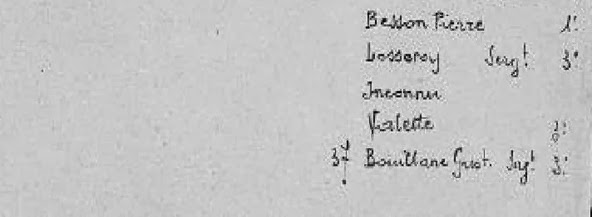 Besson Pierre 1º
Losseroy Sergt. 3º
Inconnu
Violette 2º
37 Bouillane Gust. Sgt. 3º